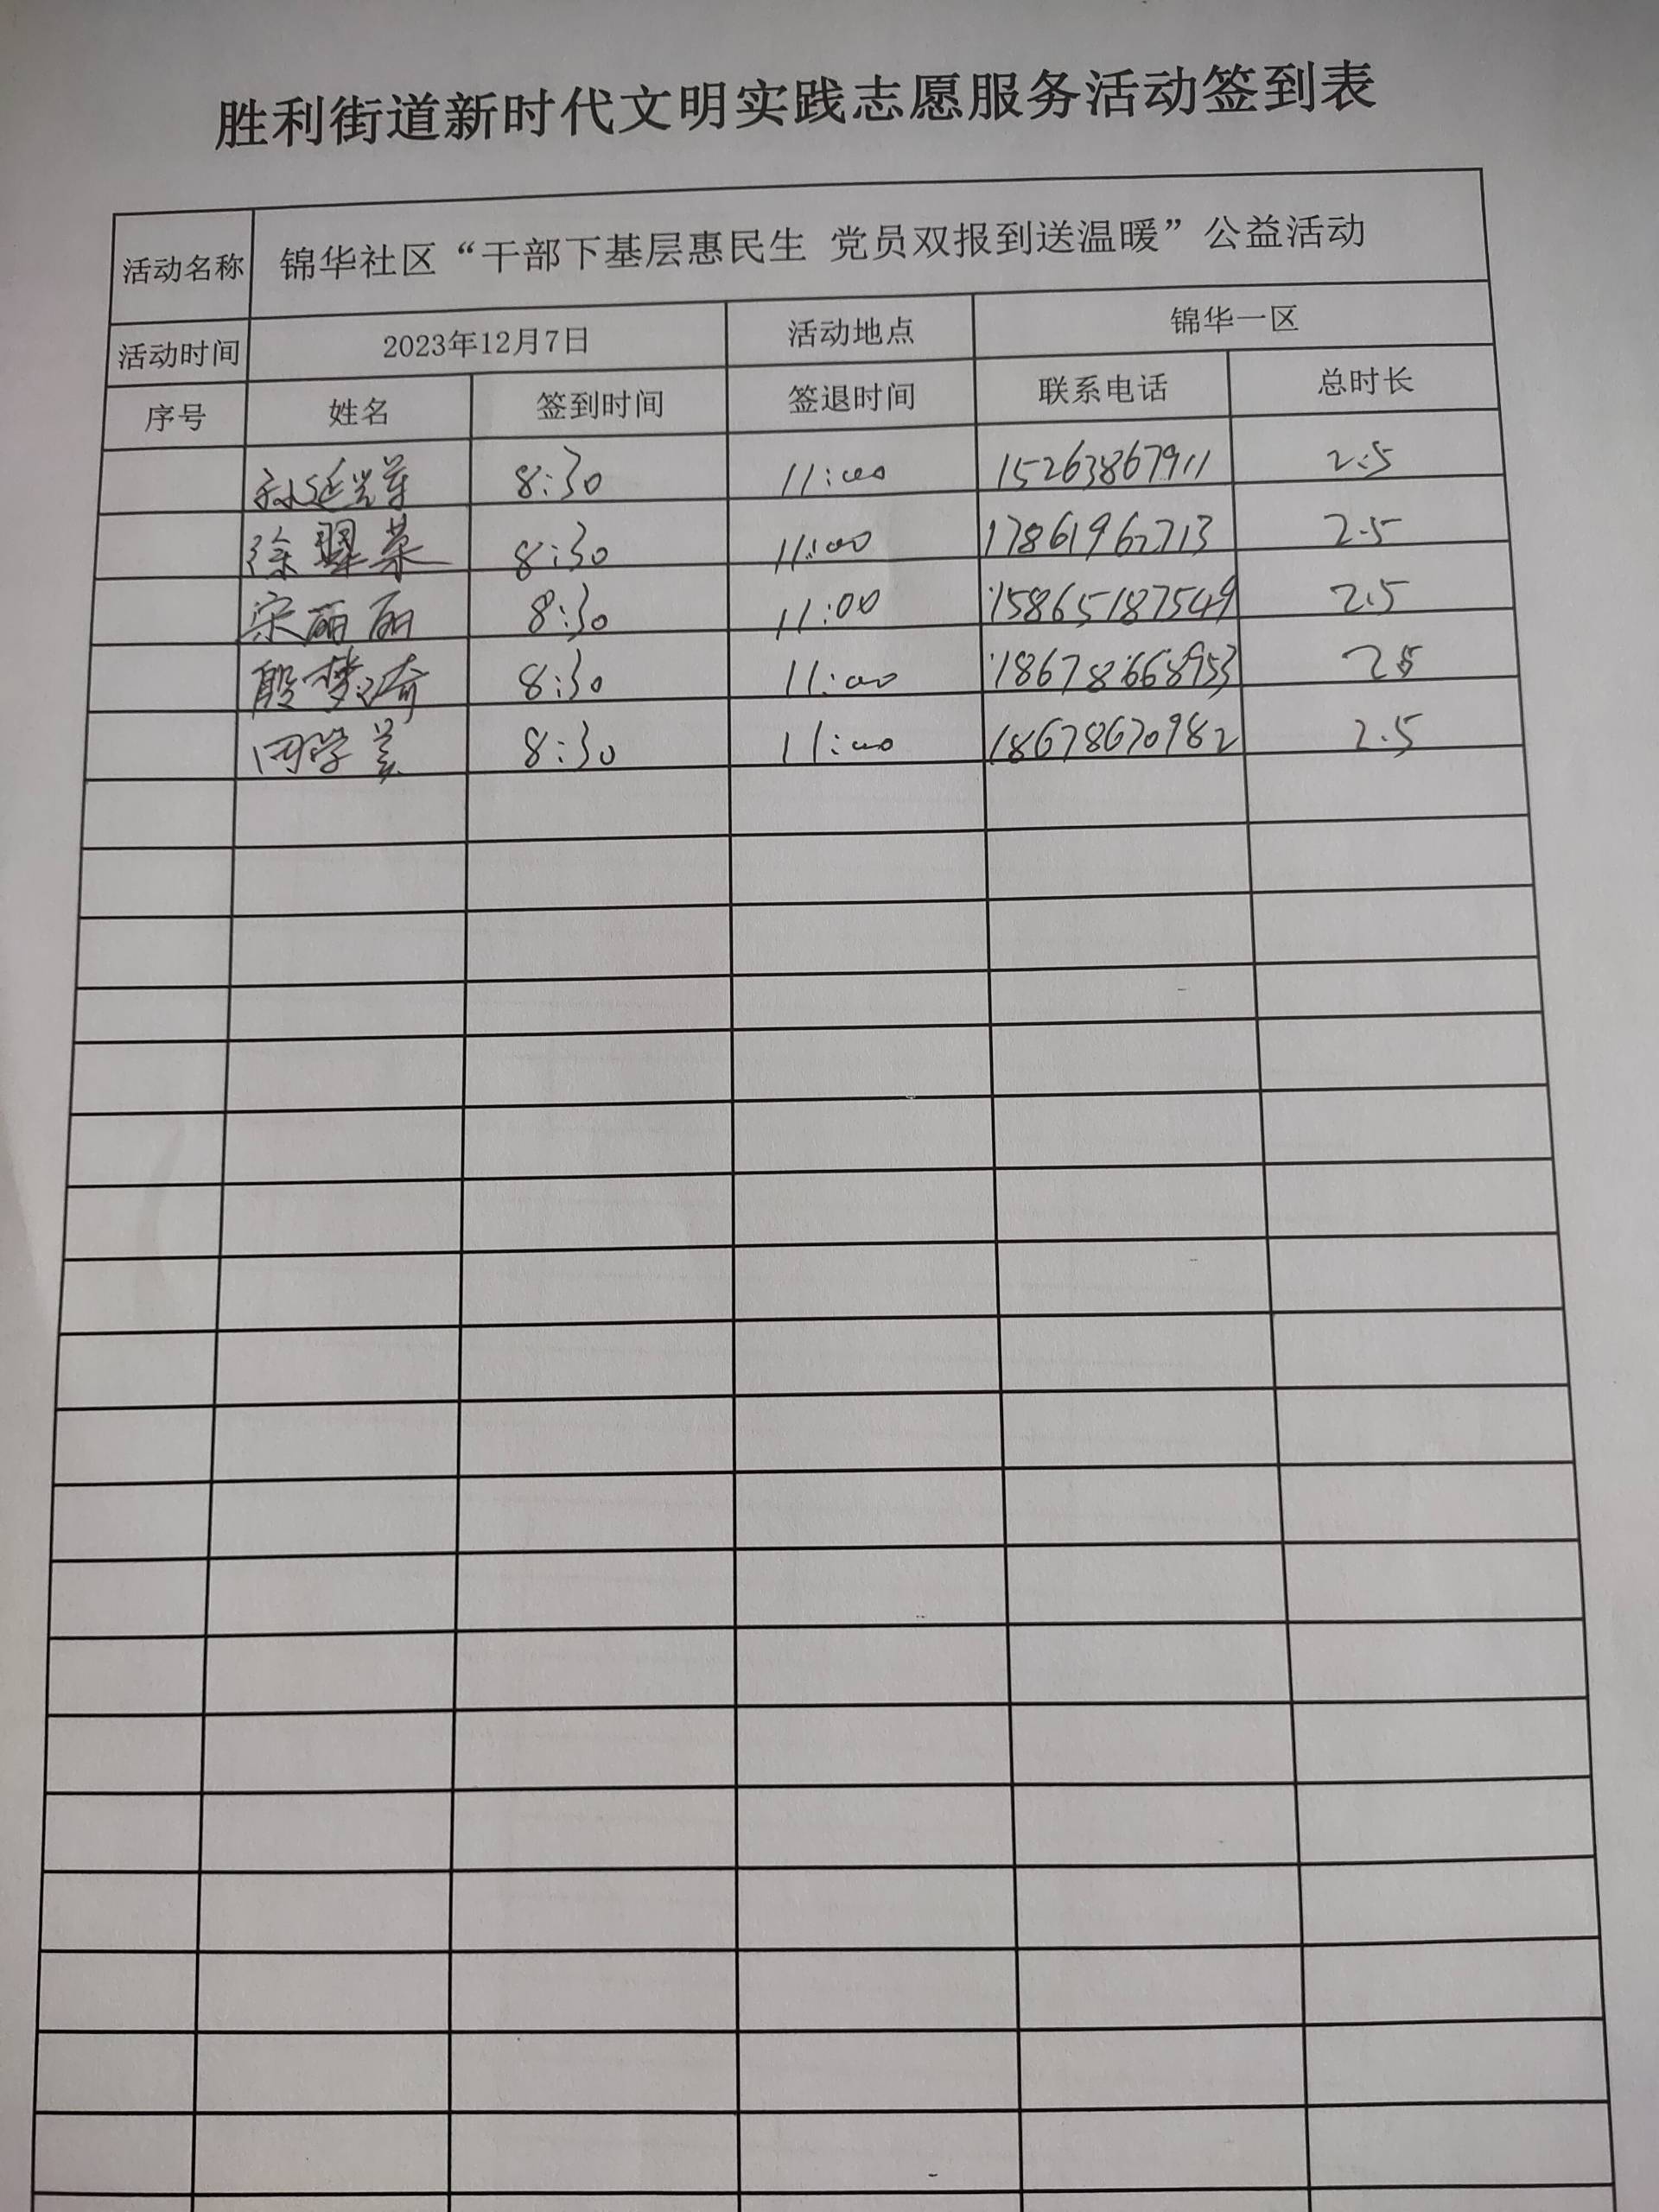 胜利街道新时代文明实践志愿服务活动签到表
活动名称 锦华社区“干部下基层惠民生 党员双报到送温暖”公益活动
活动时间 2023年12月7日 活动地点 锦华一区
序号 姓名 签到时间 签退时间 联系电话 总时长
8:30 11:00 15263867911 2.5
徐翠荣 8:30 11:00 17861962713 2.5
宋丽丽 8:30 11:00 15865187549 2.5
殷梦奇 8:30 11:00 18678668953 2.5
8:30 11:00 18678670982 2.5